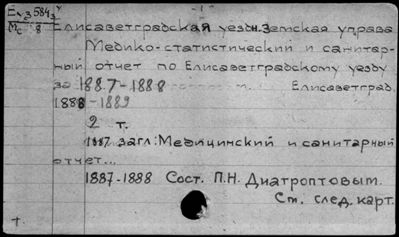 - 1 -
Елисаветградская уездн. Земская управа
Медико-статистический и санитар-
ный отчет по Елисаветградскому уезду
за 1887-1888 Елисаветград.
1888-1889
2 т.
1887 загл: Медицинский и санитарный
отчет...
1887-1888 Сост. П.Н. Диатроптовым.
См. след. карт.